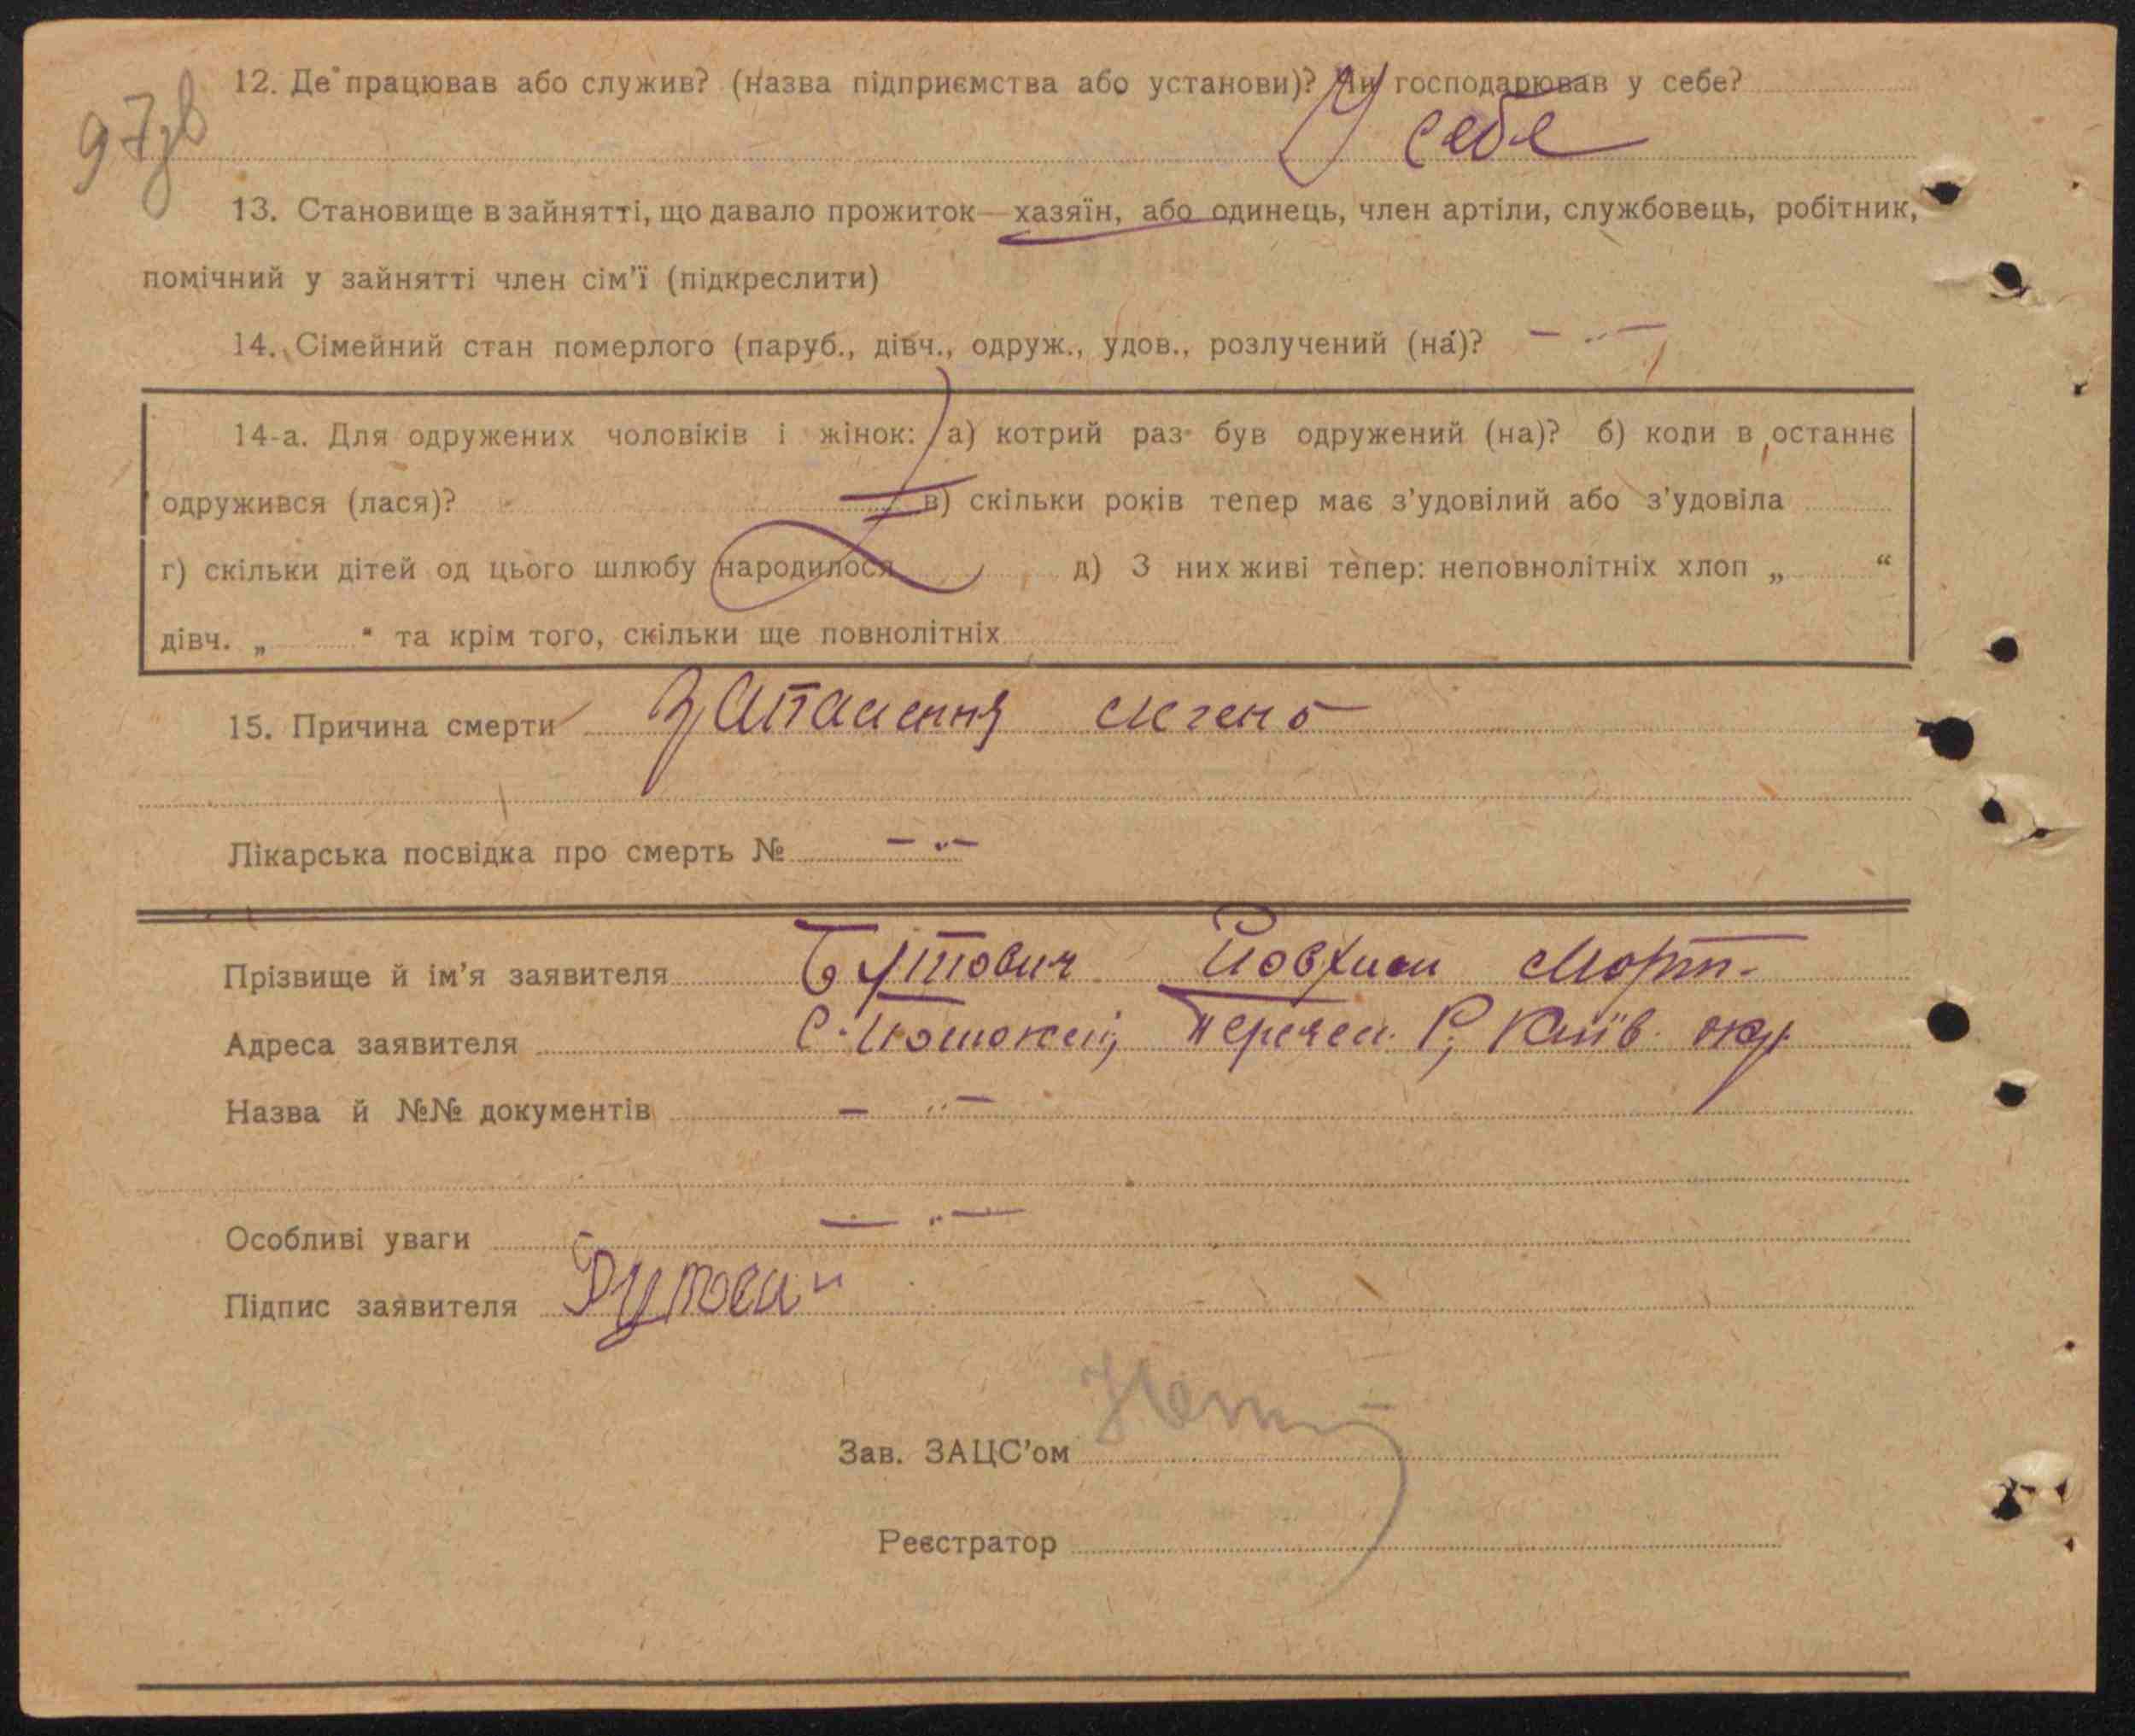 97зв
12. Де працював або служив? (назва підприємства або установи)? Чи господарював у себе?
У себе
13. Становище в зайнятті, що давало прожиток — хазяїн, або одинець, член артіли, службовець, робітник,
помічний у зайнятті член сім'ї (підкреслити)
14. Сімейний стан померлого (паруб., дівч., одруж., удов., розлучений (на)? — „ —
14-а. Для одружених чоловіків і жінок: а) котрий раз був одружений (на)? б) коли в останнє
одружився (лася)? в) скільки років тепер має з'удовілий або з'удовіла
г) скільки дітей од цього шлюбу народилося д) З них живі тепер: неповнолітніх хлоп „ “
дівч. „ “ та крім того, скільки ще повнолітніх
15. Причина смерти Запалення легень
Лікарська посвідка про смерть № — „ —
Прізвище й ім'я заявителя Бутович Йовхим Март.
Адреса заявителя с. Київ. окр.
Назва й №№ документів — „ —
Особливі уваги — „ —
Підпис заявителя Бутович
Зав. ЗАЦС'ом
Реєстратор